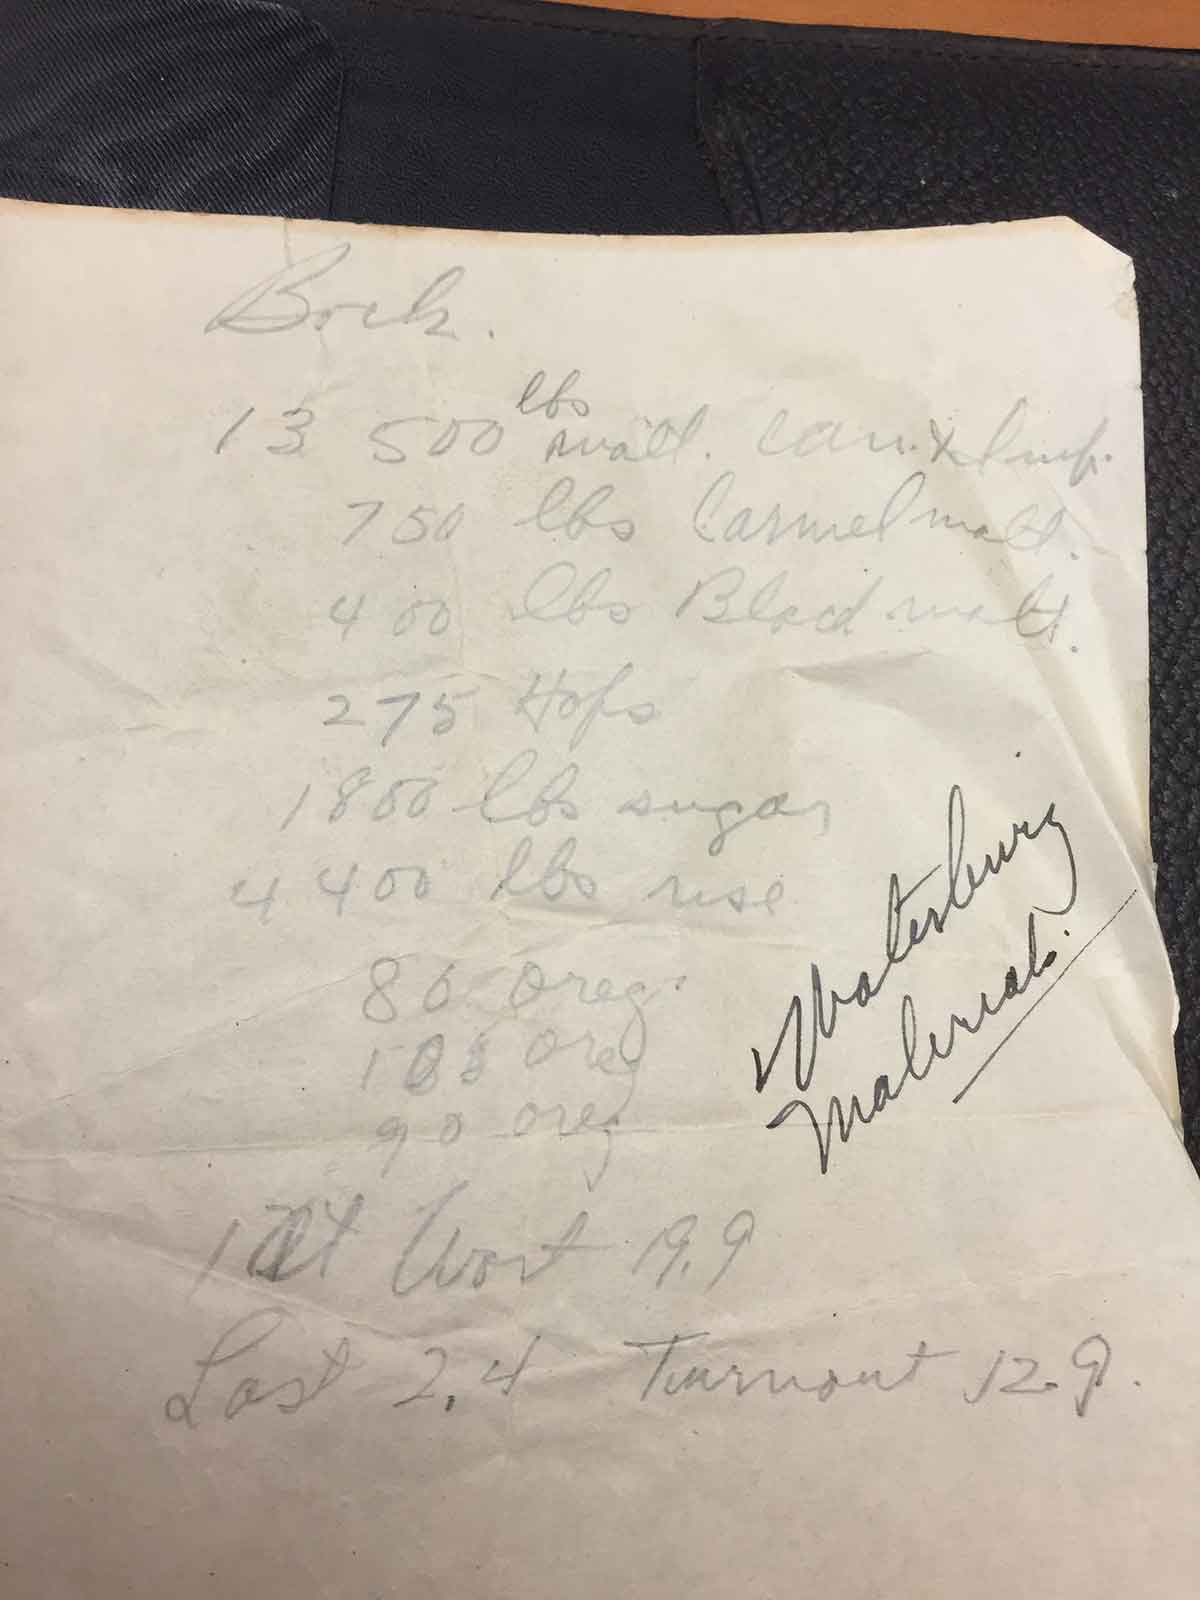 Bock.
13 500 lbs malt. Can. & Imp.
750 lbs Carmel malt.
400 lbs Black malt.
275 Hops
1800 lbs sugar
4 400 lbs rise
80 Oreg.
105 Oreg
90 oreg
Waterbury
Materials.
1st Wort 19.9
Last 2.4 Turnout 12.9.